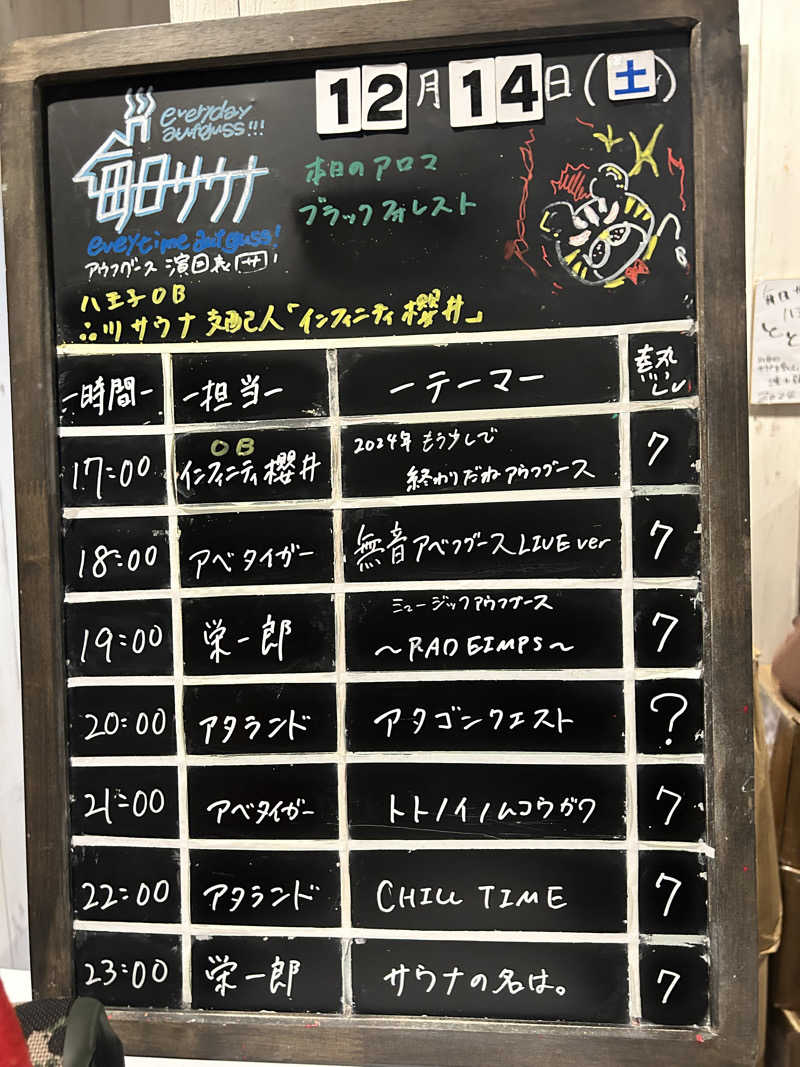 everyday
aufguss!!!
12月14日(土)
毎日サウナ
本日のアロマ
ブラックフォレスト
every-time aufguss!
アウフグース 演目表
八王子OB
サウナ支配人「インフィニティ櫻井」
-時間- -担当- -テーマー 熱Lv
17:00 OB インフィニティ櫻井 2024年 もう少しで 7
終わりだねアウフグース
18:00 アベタイガー 無音アベフグースLIVE ver 7
19:00 栄一郎 ミュージックアウフグース 7
〜RADEIMPS〜
20:00 アタランド アタゴンクエスト ?
21:00 アベタイガー トトノイノムコウガワ 7
22:00 アタランド CHILL TIME 7
23:00 栄一郎 サウナの名は。 7